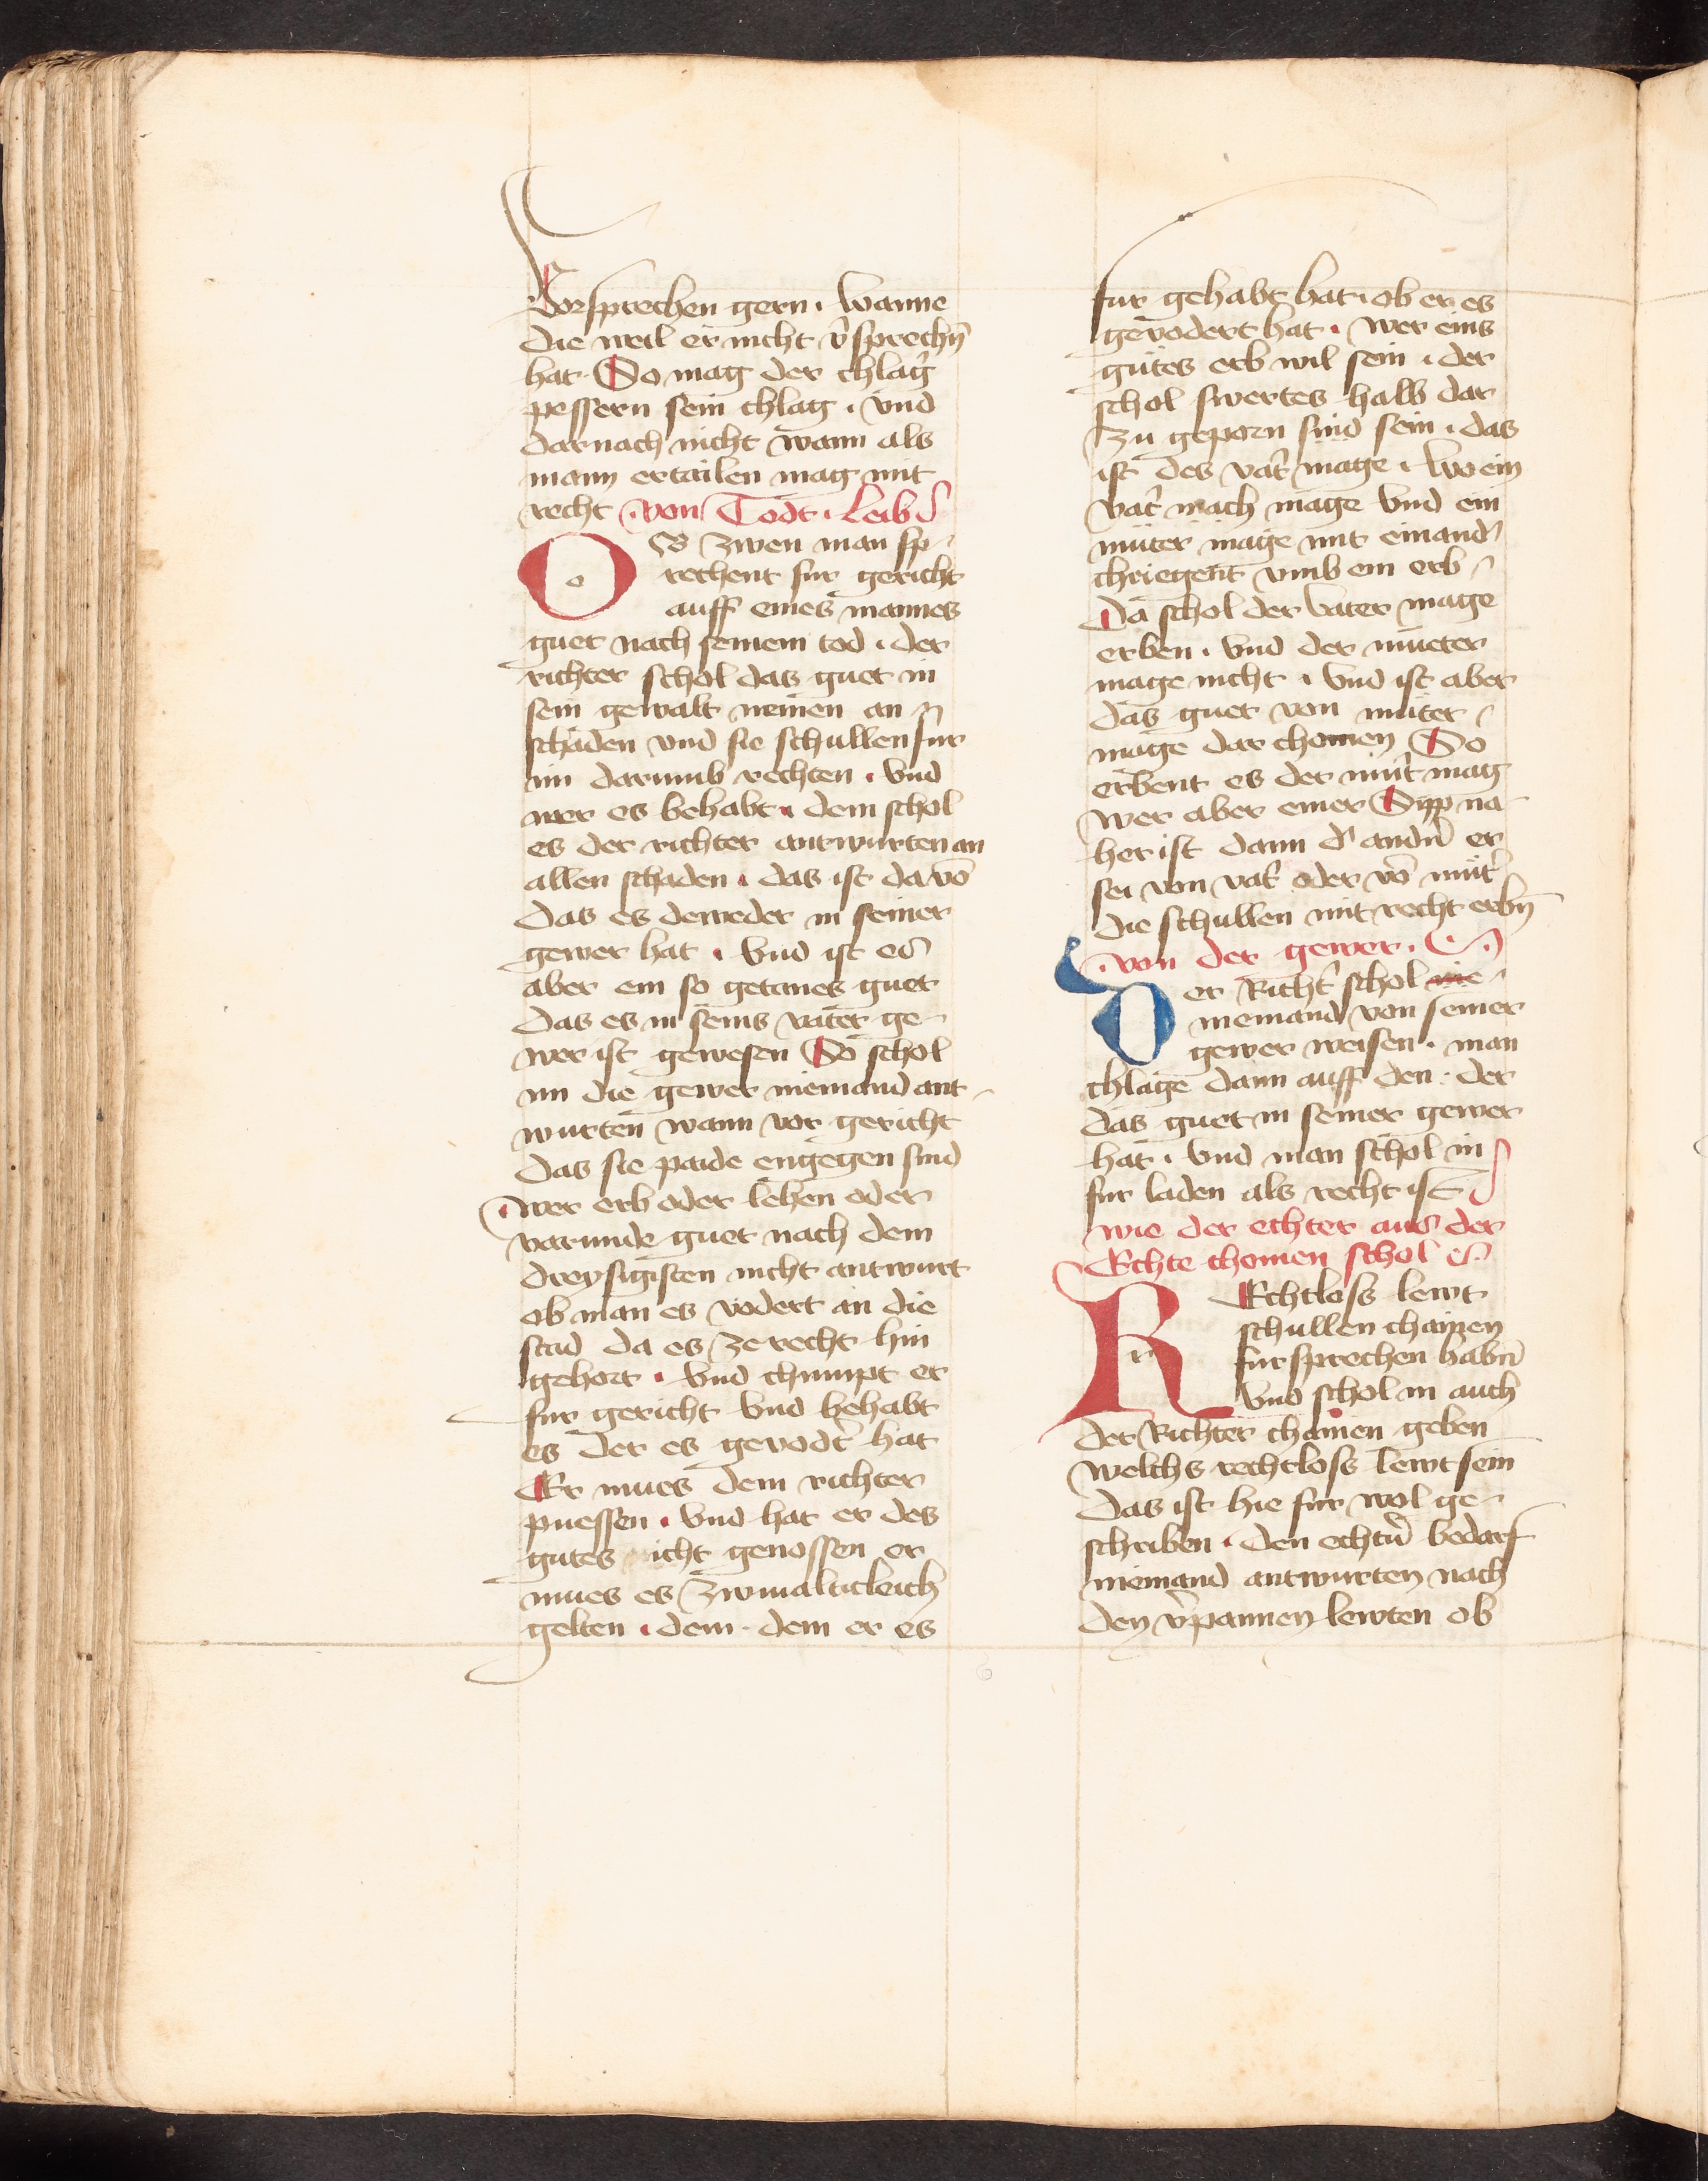 Vorsprechen gern · wanne
die weil er nicht v̄sprechn̄
hat · So mag der chlag̓
pessern sein chlag · vnd
darnach nicht wann als
mann ertailen mag mit
recht · von Todt · Leib
O
b zwen man sp-
rechent fur gericht
auff eines mannes
guet nach seinem tod · der
richter schol das guet in
sein gewalt nemen an
schaden vnd sie schullen fur
im darumb rechten · vnd
wer es behabt · dem schol
es der richter antwurten an
allen schaden · das ist da vō
das es deweder in seiner
gewer hat · vnd ist es
aber ein so getanes guet
das es in seins vater ge-
wer ist gewesen So schol
im die gewer niemand ant-
wurten wann vor gericht
das sie paide engegen sind
· wer erb oder lehen oder
varunde guet nach dem
dreysigisten nicht antwurt
ob man es vodert an die
stad da es ze recht hin
gehort · vnd chumpt er
fur gericht vnd behabt
es der es gevodt̓ hat
Er mues dem richter
puessen · vnd hat er des
gutes icht genossen er
mues es zwinalticleich
gelten · dem · dem er es
fur gehabt hat · ob er es
gevodert hat · wer eins
gutes erb wil sein · der
schol swertes halb dar
zu geporn sind sein · das
ist des vat̓ mage · wo ein
vat̓ mach mage vnd ein
muter mage mit einand̓
chriegent vmb ein erb
Da schol der vater mage
erben · vnd der mueter
mage nicht · vnd ist aber
das guet von muter
mage dar chomen So
erbent es der mut̓ mag
wer aber einer Sipp na-
her ist dann d̓ andn̄ er
sei von vat̓ oder vō mut̓
die schullen mit recht erbn̄
· von der gewer ·
D
er Richt̓ schol nie
niemand von seiner
gewer weisen · man
chlage dann auff den · der
das guet in seiner gewer
hat · vnd man schol in
fur laden als recht ist
wie der echter aus der
Echte chomen schol
R
Echtloss lewt
schullen chainen
fursprechen habn̄
vnd schol in auch
der Richter chainen geben
welchs rechtloss lewt sein
das ist hie fur wol ge-
schriben · den echtn̄ bedarf
niemand antwurten nach
den v̄pannen lewten ob